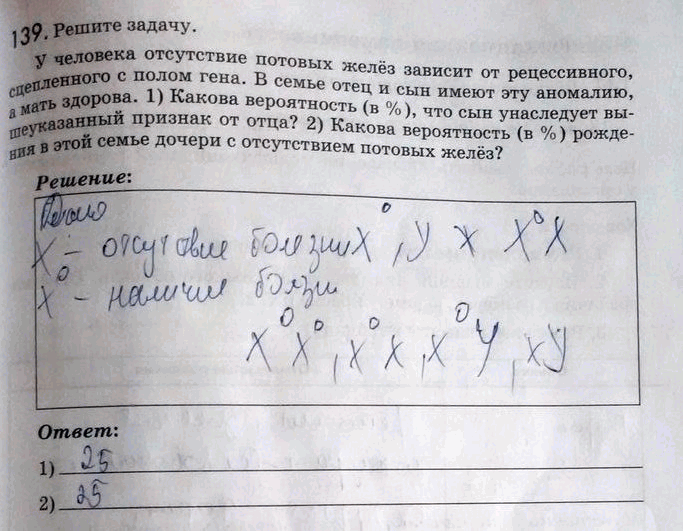 139. Решите задачу.
У человека отсутствие потовых желёз зависит от рецессивного,
сцепленного с полом гена. В семье отец и сын имеют эту аномалию,
а мать здорова. 1) Какова вероятность (в %), что сын унаследует вы-
шеуказанный признак от отца? 2) Какова вероятность (в %) рожде-
ния в этой семье дочери с отсутствием потовых желёз?
Решение:
X - отсутствие болезни X⁰, У х X⁰X
X⁰ - наличие болзни
X⁰X⁰, X⁰X, X⁰У, XУ
Ответ:
1) 25
2) 25